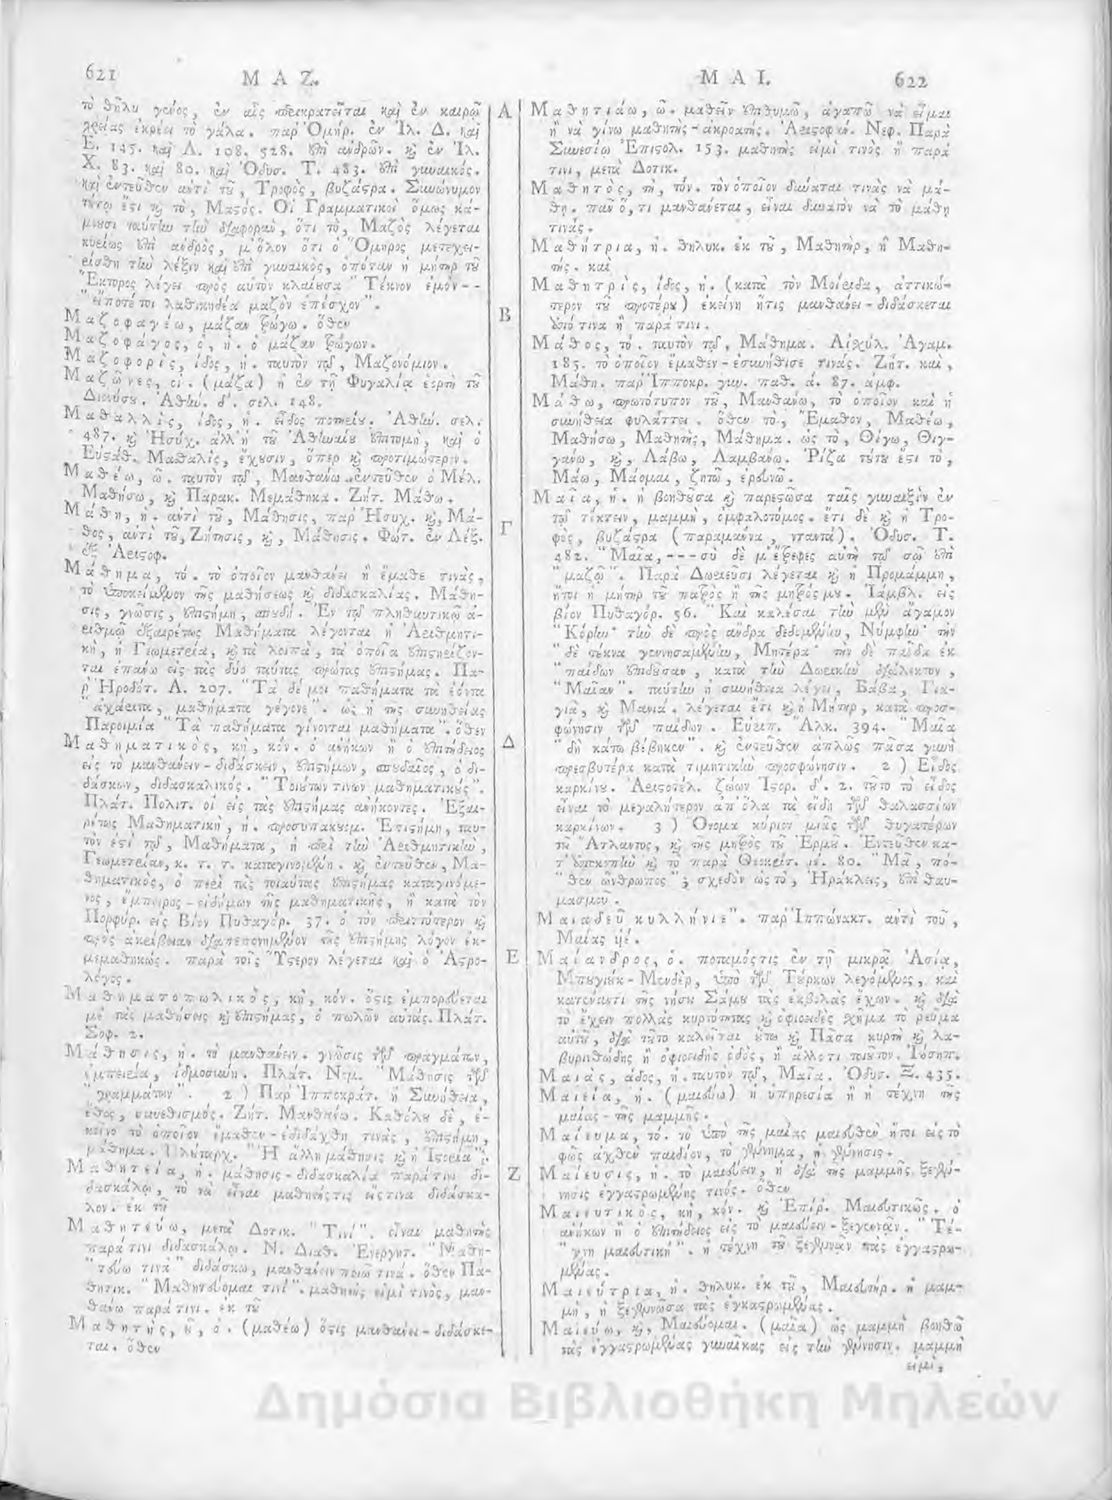 621
ΜΑΖ.
τὸ θῆλυ γένος, ἐν αἷς περικρατεῖται καὶ ἐν καιρῷ
χρείας ἐκρέει τὸ γάλα. παρ' Ὁμήρ. ἐν Ἰλ. Δ. καὶ
Ε. 145. καὶ Λ. 108. 528. ἐπὶ ἀνδρῶν. καὶ ἐν Ἰλ.
Χ. 83. καὶ 80. καὶ Ὀδυσ. Τ. 483. ἐπὶ γυναικός.
καὶ ἐντεῦθεν ἀντὶ τοῦ, Τροφὸς, βυζάστρα. Συνώνυμον
τούτῳ ἔστι καὶ τὸ, Μαστός. Οἱ Γραμματικοὶ ὅμως κά-
μνουσι ταύτην τὴν διαφορὰν, ὅτι τὸ, Μαζὸς λέγεται
κυρίως ἐπὶ ἀνδρὸς, μ' ὅλον ὅτι ὁ Ὅμηρος μετεχει-
ρίσθη τὴν λέξιν καὶ ἐπὶ γυναικὸς, ὁπόταν ἡ μήτηρ τοῦ
Ἕκτορος λέγει πρὸς αὐτὸν κλαίουσα "Τέκνον ἐμὸν--
"εἴποτέ τοι λαθικηδέα μαζὸν ἐπέσχον".
Μαζοφαγέω, μάζαν τρώγω. ὅθεν
Μαζοφάγος, ὁ, ἡ. ὁ μάζαν τρώγων.
Μαζοφορὶς, ίδος, ἡ. ταυτὸν τῷ, Μαζονόμιον.
Μαζῶνες, οἱ. (μάζα) ἡ ἐν τῇ Φυγαλίᾳ ἑορτὴ τοῦ
Διονύσου. Ἀθήν. δ'. σελ. 148.
Μαθαλλὶς, ίδος, ἡ. εἶδος ποτηρίου. Ἀθήν. σελ.
487. καὶ Ἡσύχ. ἀλλ' ἡ τοῦ Ἀθηναίου ἐπιτομὴ, καὶ ὁ
Εὐστάθ. Μαθαλὶς, ἔχουσιν, ὅπερ καὶ προτιμώτερον.
Μαθέω, ῶ. ταυτὸν τῷ, Μανθάνω. ἐντεῦθεν ὁ Μέλ.
Μαθήσω, καὶ Παρακ. Μεμάθηκα. Ζήτ. Μάθω.
Μάθη, ἡ. ἀντὶ τοῦ, Μάθησις, παρ' Ἡσυχ. καὶ, Μά-
θος, ἀντὶ τοῦ, Ζήτησις, καὶ, Μάθησις. Φώτ. ἐν Λέξ.
ἐξ Ἀριστοφ.
Μάθημα, τό. τὸ ὁποῖον μανθάνει ἢ ἔμαθε τινὰς,
τὸ ὑποκείμενον τῆς μαθήσεως καὶ διδασκαλίας. Μάθη-
σις, γνῶσις, ἐπιστήμη, σπουδή. Ἐν τῷ πληθυντικῷ ἀ-
ριθμῷ ἐξαιρέτως Μαθήματα λέγονται ἡ Ἀριθμητι-
κὴ, ἡ Γεωμετρία, καὶ τὰ λοιπὰ, τὰ ὁποῖα ἐπιστηρίζον-
ται ἐπάνω εἰς τὰς δύο ταύτας πρώτας ἐπιστήμας. Πα-
ρ' Ἡροδότ. Α. 207. "Τὰ δέ μοι παθήματα τὰ ἐόντα
"ἀχάριτα, μαθήματα γέγονε". ὡς ἡ τῆς συνηθείας
Παροιμία "Τὰ παθήματα γίνονται μαθήματα". ὅθεν
Μαθηματικὸς, κὴ, κόν. ὁ ἀνήκων ἢ ὁ ἐπιτήδειος
εἰς τὸ μανθάνειν-διδάσκειν, ἐπιστήμων, σπουδαῖος, ὁ δι-
δάσκων, διδασκαλικός. "Τοιούτων τινῶν μαθηματικούς".
Πλάτ. Πολιτ. οἱ εἰς τὰς ἐπιστήμας ἀνήκοντες. Ἐξαι-
ρέτως Μαθηματικὴ, ἡ. προσυπακουομ. Ἐπιστήμη, ταυ-
τόν ἐστι τῷ, Μαθήματα, ἡ περὶ τὴν Ἀριθμητικὴν,
Γεωμετρίαν, κ. τ. τ. καταγινομένη. καὶ ἐντεῦθεν, Μα-
θηματικὸς, ὁ περὶ τὰς τοιαύτας ἐπιστήμας καταγινόμε-
νος, ἔμπειρος-εἰδήμων τῆς μαθηματικῆς, ἢ κατὰ τὸν
Πορφύρ. εἰς Βίον Πυθαγόρ. 37. ὁ τὸν περιττότερον καὶ
πρὸς ἀκρίβειαν διαπεπονημένον τῆς ἐπιστήμης λόγον ἐκ-
μεμαθηκώς. παρὰ τοῖς Ὕστερον λέγεται καὶ ὁ Ἀστρο-
λόγος.
Μαθηματοπωλικὸς, κὴ, κόν. ὅστις ἐμπορεύεται
μὲ τὰς μαθήσεις καὶ ἐπιστήμας, ὁ πωλῶν αὐτάς. Πλάτ.
Σοφ. 2.
Μάθησις, ἡ. τὸ μανθάνειν. γνῶσις τῶν πραγμάτων,
ἐμπειρία, ἰδμοσύνη. Πλάτ. Νομ. "Μάθησις τῶν
"γραμμάτων". 2) Παρ' Ἱπποκράτ. ἡ Συνήθεια,
ἔθος, συνεθισμός. Ζήτ. Μανθάνω. Καθόλου δὲ, ἐ-
κεῖνο τὸ ὁποῖον ἔμαθεν-ἐδιδάχθη τινὰς, ἐπιστήμη,
μάθημα. Πλούταρχ. "Ἡ ἄλλη μάθησις καὶ ἡ Ἱστορία".
Μαθητεία, ἡ. μάθησις-διδασκαλία παρά τινι δι-
δασκάλῳ, τὸ νὰ εἶναι μαθητής τις εἴς τινα διδάσκα-
λον. ἐκ τοῦ
Μαθητεύω, μετὰ Δοτικ. "Τινί". εἶναι μαθητὴς
παρά τινι διδασκάλῳ. Ν. Διαθ. Ἐνεργητ. "Μαθη-
"τεύω τινὰ" διδάσκω, μανθάνειν ποιῶ τινά. ὅθεν Πα-
θητικ. "Μαθητεύομαι τινί". μαθητὴς εἰμί τινὸς, μαν-
θάνω παρά τινι. ἐκ τοῦ
Μαθητὴς, οῦ, ὁ. (μαθέω) ὅστις μανθάνει-διδάσκε-
ται. ὅθεν
Α
Β
Γ
Δ
Ε
Ζ
ΜΑΙ.
622
Μαθητιάω, ῶ. μαθεῖν ἐπιθυμῶ, ἀγαπῶ νὰ εἶμαι
ἢ νὰ γίνω μαθητὴς-ἀκροατής. Ἀριστοφάν. Νεφ. Παρὰ
Συνεσίῳ Ἐπιστολ. 153. μαθητὴς εἰμὶ τινὸς ἢ παρά
τινι, μετὰ Δοτικ.
Μαθητὸς, τὴ, τόν. τὸν ὁποῖον δύναται τινὰς νὰ μά-
θῃ. πᾶν ὅ,τι μανθάνεται, εἶναι δυνατὸν νὰ τὸ μάθῃ
τινάς.
Μαθήτρια, ἡ. θηλυκ. ἐκ τοῦ, Μαθητὴρ, ἢ Μαθη-
τής. καὶ
Μαθητρὶς, ίδος, ἡ. (κατὰ τὸν Μοίριδα, ἀττικώ-
τερον τοῦ προτέρου) ἐκείνη ἥτις μανθάνει-διδάσκεται
ὑπό τινα ἢ παρά τινι.
Μάθος, τό. ταυτὸν τῷ, Μάθημα. Αἰσχύλ. Ἀγαμ.
185. τὸ ὁποῖον ἔμαθεν-ἐσυνήθισε τινάς. Ζήτ. καὶ,
Μάθη. παρ' Ἱπποκρ. γυν. παθ. ά. 87. ἀμφ.
Μάθω, πρωτότυπον τοῦ, Μανθάνω, τὸ ὁποῖον καὶ ἡ
συνήθεια φυλάττει. ὅθεν τὸ, Ἔμαθον, Μαθέω,
Μαθήσω, Μαθητὴς, Μάθημα. ὡς τὸ, Θίγω, Θιγ-
γάνω, καὶ, Λάβω, Λαμβάνω. Ῥίζα τούτου ἔστι τὸ,
Μάω, Μάομαι, ζητῶ, ἐρευνῶ.
Μαῖα, ἡ. ἡ βοηθοῦσα καὶ παρεστῶσα ταῖς γυναιξὶν ἐν
τῷ τίκτειν, μαμμὴ, ὀμφαλοτόμος. ἔτι δὲ καὶ ἡ Τρο-
φὸς, βυζάστρα (παραμάννα, νταντά). Ὀδυσ. Τ.
482. "Μαῖα,---σὺ δέ μ' ἔτρεφες αὐτὴ τῷ σῷ ἐπὶ
"μαζῷ". Παρὰ Δωριεῦσι λέγεται καὶ ἡ Προμάμμη,
ἤτοι ἡ μήτηρ τοῦ πατρὸς ἢ τῆς μητρός μου. Ἰάμβλ. εἰς
βίον Πυθαγόρ. 56. "Καὶ καλέσαι τὴν μὲν ἄγαμον
"Κόρην· τὴν δὲ πρὸς ἄνδρα δεδομένην, Νύμφην· τὴν
"δὲ τέκνα γεννησαμένην, Μητέρα· τὴν δὲ παῖδα ἐκ
"παίδων ἐπιδοῦσαν, κατὰ τὴν Δωρικὴν διάλεκτον,
"Μαῖαν". ταύτην ἡ συνήθεια λέγει, Βάβα, Για-
γιὰ, καὶ Μανιά. λέγεται ἔτι καὶ ἡ Μήτηρ, κατὰ προσ-
φώνησιν τῶν παίδων. Εὐριπ. Ἄλκ. 394. "Μαῖα
"δὴ κάτω βέβηκεν". καὶ ἐντεῦθεν ἁπλῶς πᾶσα γυνὴ
πρεσβυτέρα κατὰ τιμητικὴν προσφώνησιν. 2) Εἶδος
καρκίνου. Ἀριστοτέλ. ζώων Ἱστορ. δ'. 2. τοῦτο τὸ εἶδος
εἶναι τὸ μεγαλήτερον ἀπ' ὅλα τὰ εἴδη τῶν θαλασσίων
καρκίνων. 3) Ὄνομα κύριον μιᾶς τῶν θυγατέρων
τοῦ Ἄτλαντος, καὶ τῆς μητρὸς τοῦ Ἑρμοῦ. Ἐντεῦθεν κα-
τ' ἐπικοπὴν καὶ τὸ παρὰ Θεοκρίτ. ιέ. 80. "Μᾶ, πό-
"θεν ὥνθρωπος"; σχεδὸν ὡς τὸ, Ἡράκλεις, ἐπὶ θαυ-
μασμοῦ.
Μαιαδεῦ κυλλήνιε". παρ' Ἱππώνακτ. ἀντὶ τοῦ,
Μαίας υἱέ.
Μαίανδρος, ὁ. ποταμός τις ἐν τῇ μικρᾷ Ἀσίᾳ,
Μπουγιοὺκ-Μενδὲρ, ὑπὸ τῶν Τούρκων λεγόμενος, καὶ
κατέναντι τῆς νήσου Σάμου τὰς ἐκβολὰς ἔχων. καὶ διὰ
τὸ ἔχειν πολλὰς κυρτότητας καὶ ὀφιοειδὲς χῆμα τὸ ῥεῦμα
αὐτοῦ, διὰ τοῦτο καλεῖται οὕτω καὶ Πᾶσα κυρτὴ καὶ λα-
βυρινθώδης ἢ ὀφιοειδὴς ὁδὸς, ἢ ἄλλο τι τοιοῦτον. Ἰώσηπ.
Μαιὰς, άδος, ἡ. ταυτὸν τῷ, Μαῖα. Ὀδυσ. Ξ. 435.
Μαιεία, ἡ. (μαιεύω) ἡ ὑπηρεσία ἢ ἡ τέχνη τῆς
μαίας-τῆς μαμμῆς.
Μαίευμα, το. τὸ ὑπὸ τῆς μαίας μαιευθὲν ἤτοι εἰς τὸ
φῶς ἀχθὲν παιδίον, τὸ γέννημα, ἡ γέννησις.
Μαίευσις, ἡ. τὸ μαιεύειν, ἡ διὰ τῆς μαμμῆς ξεγέν-
νησις ἐγγαστρωμένης τινός. ὅθεν
Μαιευτικὸς, κὴ, κόν. καὶ Ἐπίρ. Μαιευτικῶς. ὁ
ἀνήκων ἢ ὁ ἐπιτήδειος εἰς τὸ μαιεύειν-ξεγεννᾶν. "Τέ-
"χνη μαιευτική". ἡ τέχνη τοῦ ξεγεννᾶν τὰς ἐγγαστρω-
μένας.
Μαιεύτρια, ἡ. θηλυκ. ἐκ τοῦ, Μαιευτήρ. ἡ μαμ-
μὴ, ἡ ξεγεννῶσα τὰς ἐγκαστρωμένας.
Μαιεύω, καὶ, Μαιεύομαι. (μαῖα) ὡς μαμμὴ βοηθῶ
τὰς ἐγγαστρωμένας γυναῖκας εἰς τὴν γέννησιν. μαμμὴ
εἰμὶ,
Δημόσια Βιβλιοθήκη Μηλεών